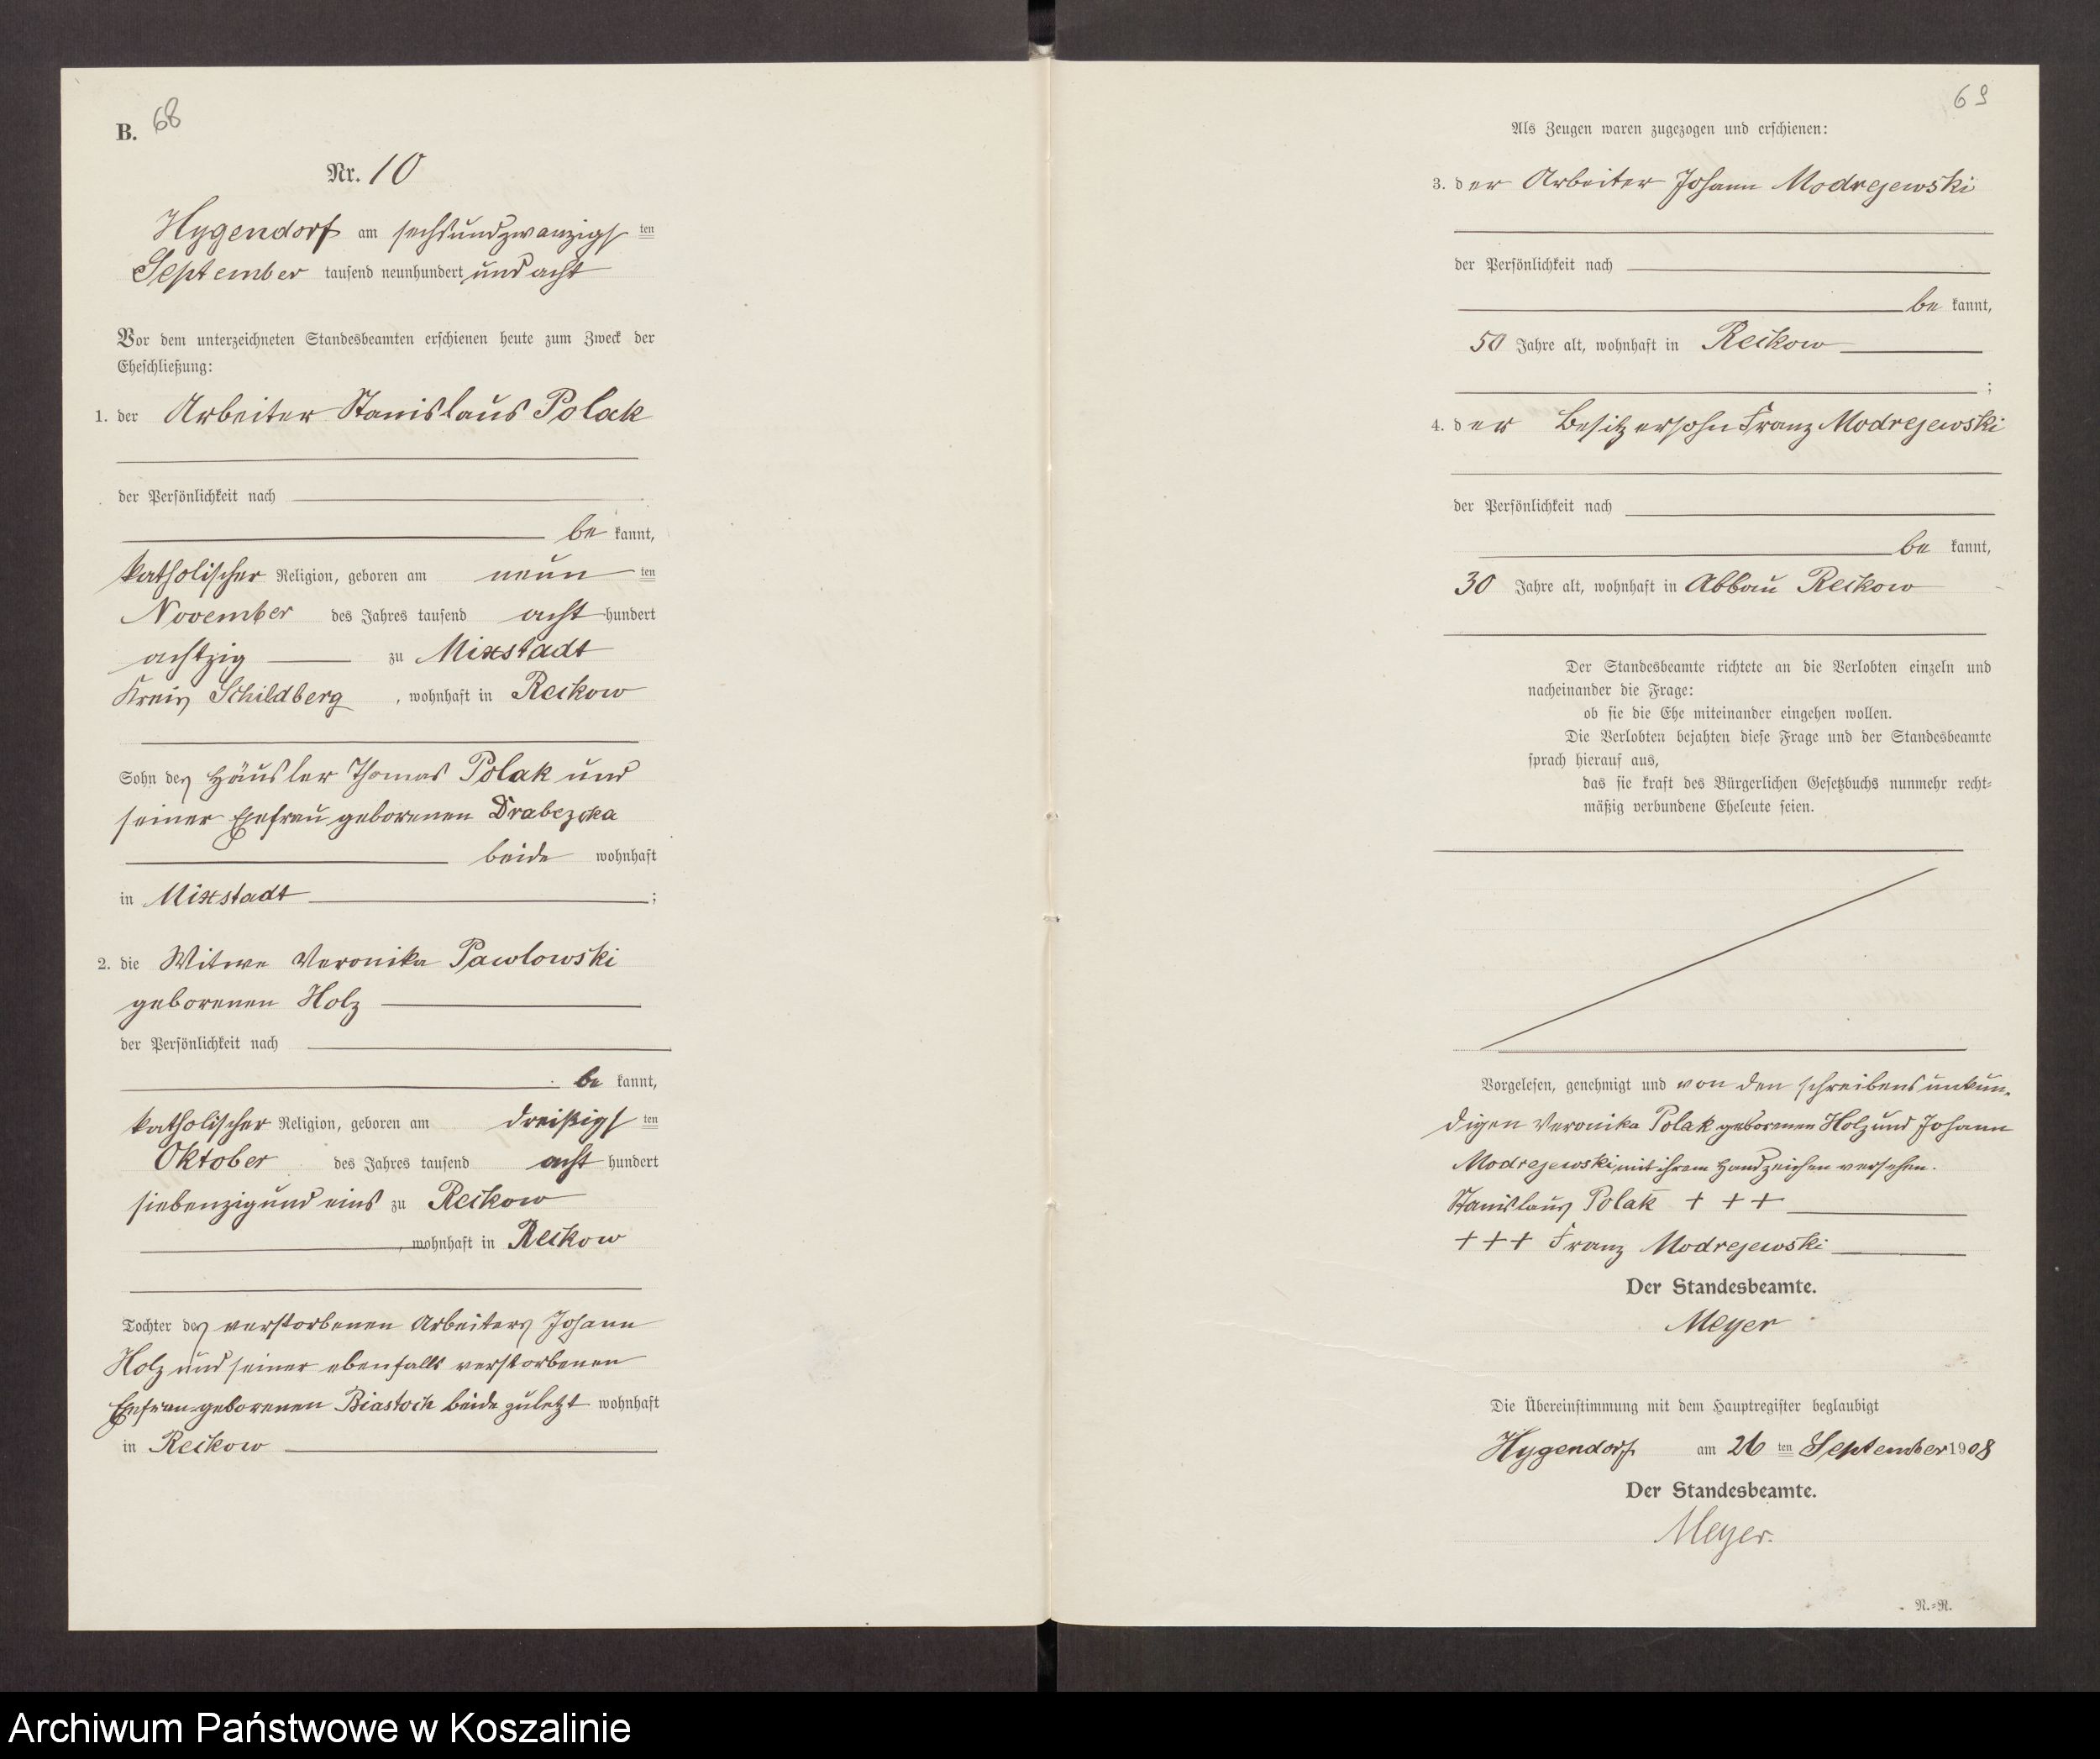 B. 68
Nr. 10
Hygendorf am sechsundzwanzigsten
September tausend neunhundert und acht
Vor dem unterzeichneten Standesbeamten erschienen heute zum Zweck der
Eheschließung:
1. der Arbeiter Stanislaus Polak
der Persönlichkeit nach
be kannt,
katholischer Religion, geboren am neun ten
November des Jahres tausend acht hundert
achtzig zu Mixstadt
Kreis Schildberg, wohnhaft in Reckow
Sohn des Häusler Thomas Polak und
seiner Ehefrau geborenen
beide wohnhaft
in Mixstadt ;
2. die Witwe Veronika Pawlowski
geborenen Holz
der Persönlichkeit nach
be kannt,
katholischer Religion, geboren am dreißigsten
Oktober des Jahres tausend acht hundert
siebenzig und eins zu Reckow
, wohnhaft in Reckow
Tochter des verstorbenen Arbeiters Johann
Holz und seiner ebenfalls verstorbenen
Ehefrau geborenen Biastoch beide zuletzt wohnhaft
in Reckow
69
Als Zeugen waren zugezogen und erschienen:
3. der Arbeiter Johann Modrejewski
der Persönlichkeit nach
be kannt,
50 Jahre alt, wohnhaft in Reckow
;
4. der Besitzersohn Franz Modrejewski
der Persönlichkeit nach
be kannt,
30 Jahre alt, wohnhaft in Abbau Reckow
Der Standesbeamte richtete an die Verlobten einzeln und
nacheinander die Frage:
ob sie die Ehe miteinander eingehen wollen.
Die Verlobten bejahten diese Frage und der Standesbeamte
sprach hierauf aus,
das sie kraft des Bürgerlichen Gesetzbuchs nunmehr recht-
mäßig verbundene Eheleute seien.
Vorgelesen, genehmigt und von den schreibensunkun-
digen Veronika Polak geborenen Holz und Johann
Modrejewski mit ihrem Handzeichen versehen.
Stanislaus Polak + + +
+ + + Franz Modrejewski
Der Standesbeamte.
Meyer
Die Übereinstimmung mit dem Hauptregister beglaubigt
Hygendorf am 26 ten September 1908
Der Standesbeamte.
Meyer.
N.=R.
Archiwum Państwowe w Koszalinie